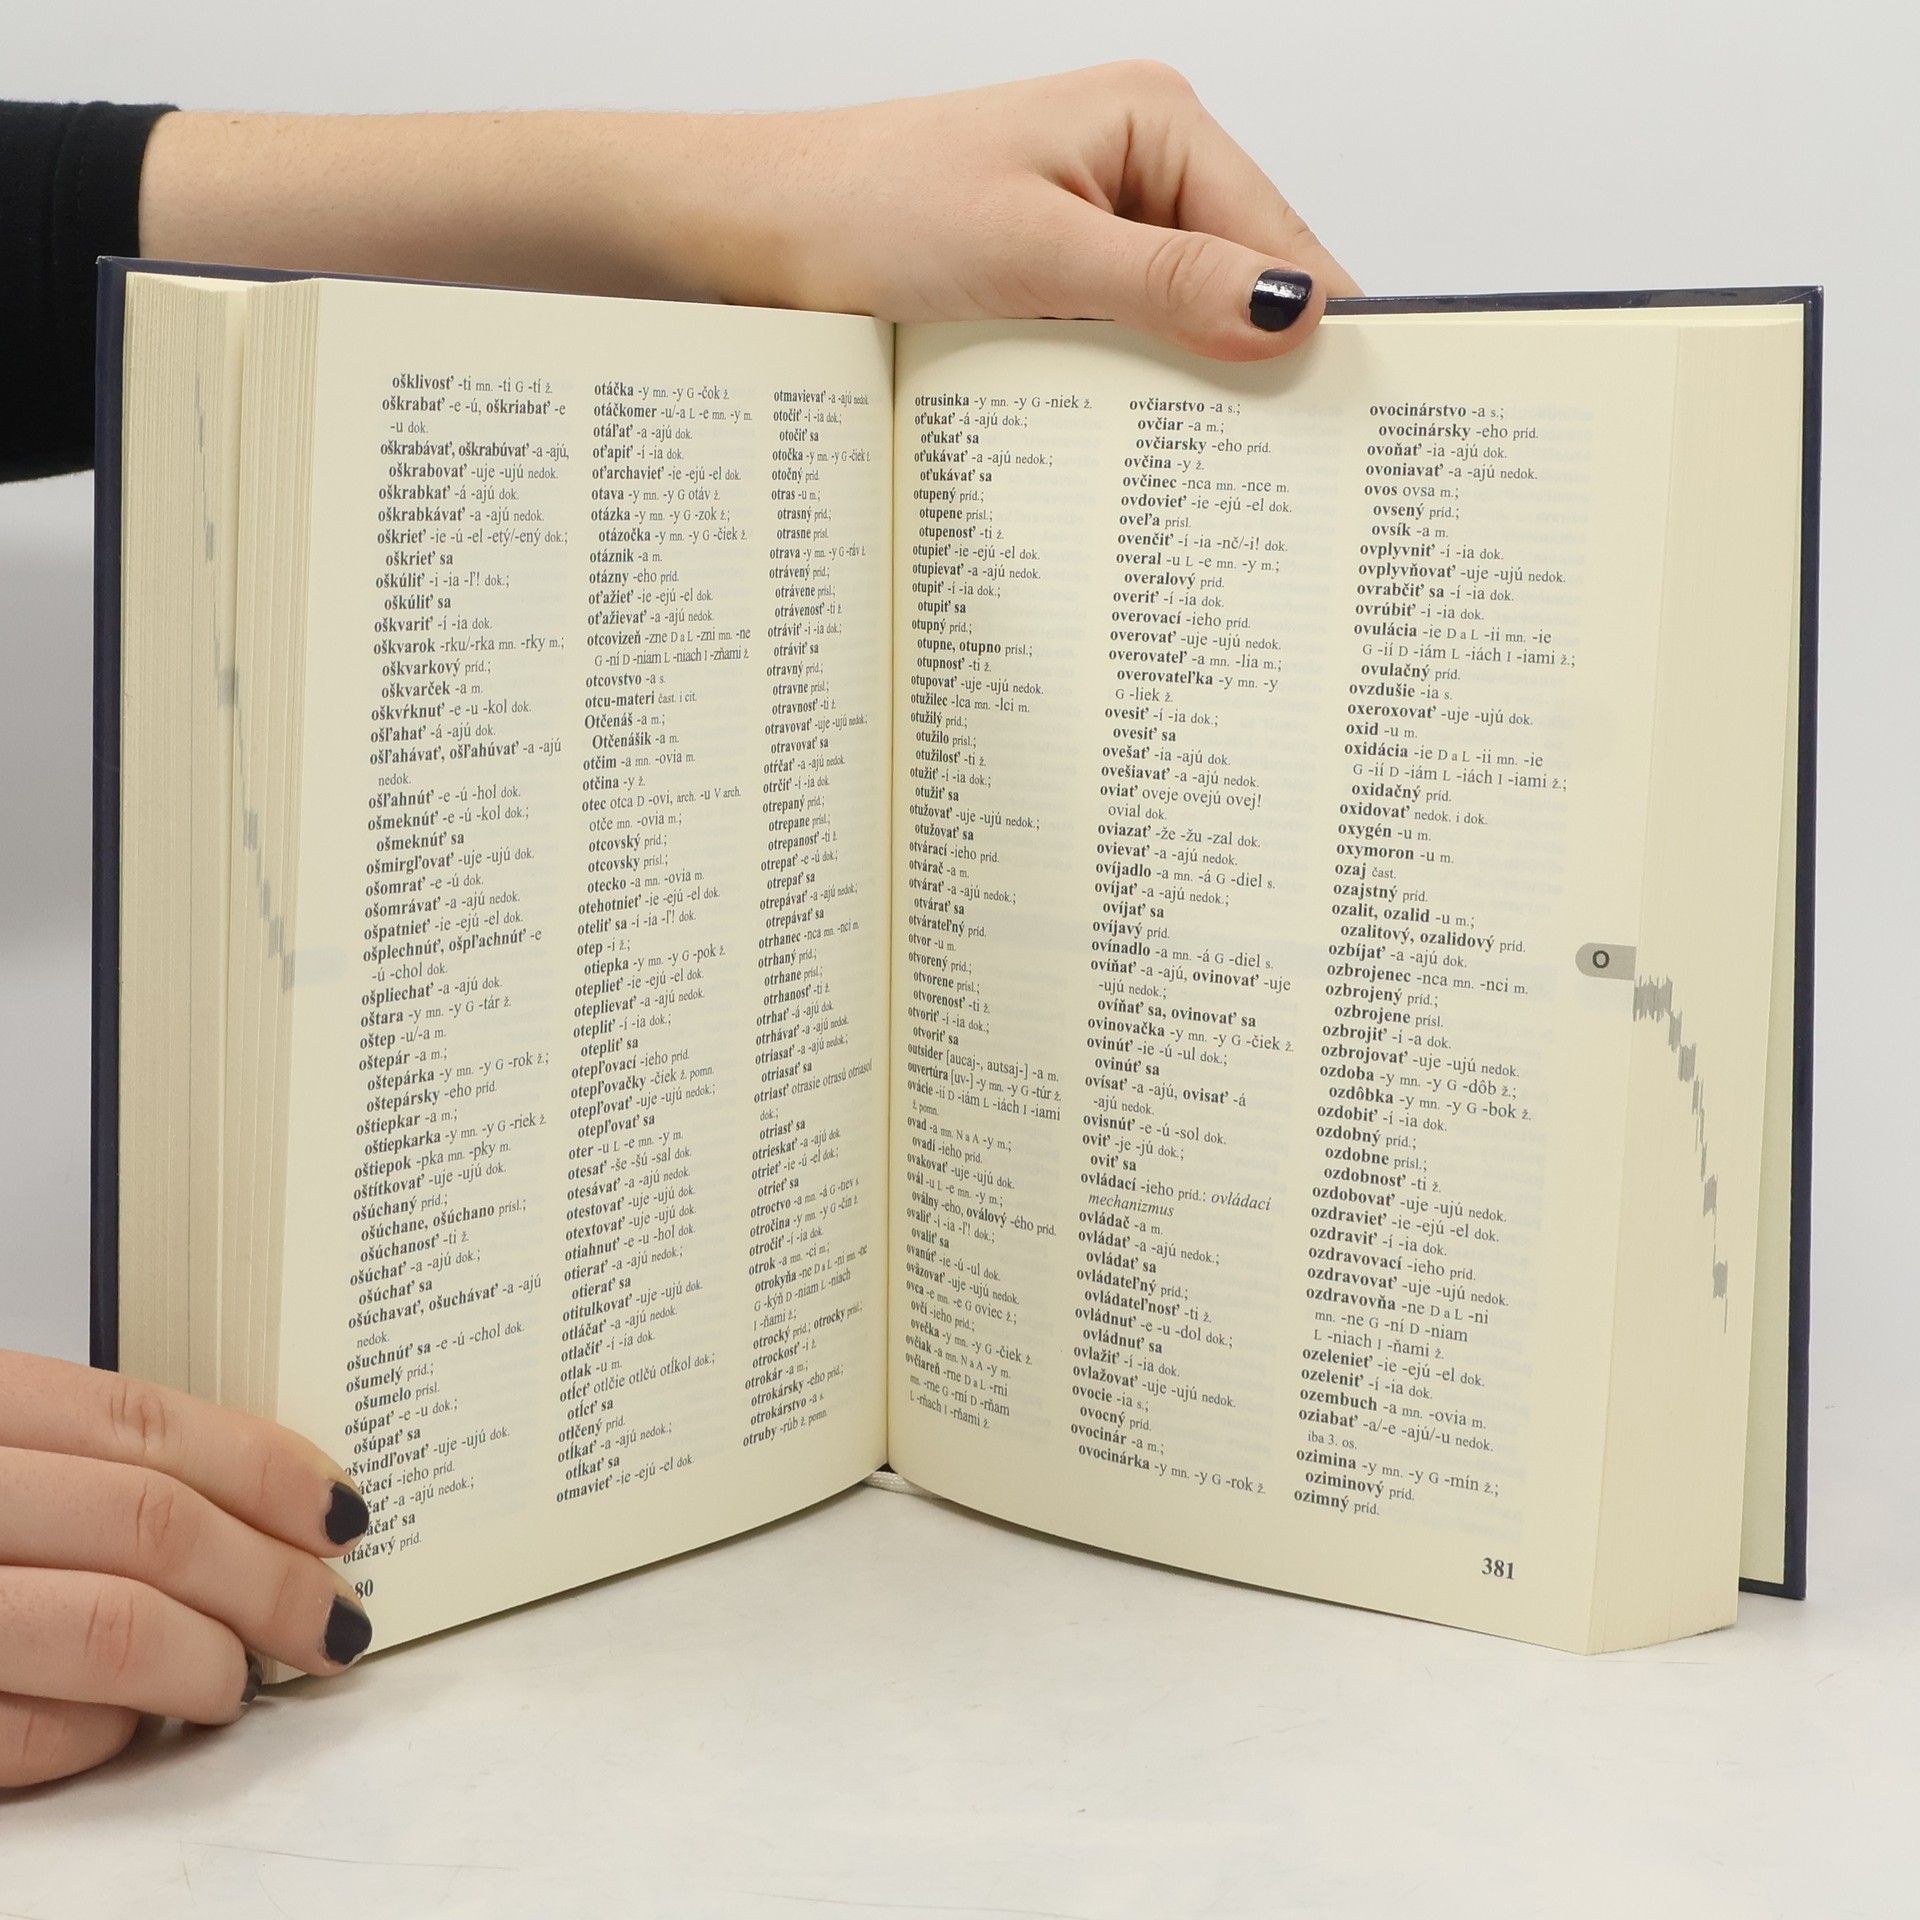 ošklivosť -ti mn. -ti G -tí ž.
oškrabať -e -ú, oškriabať -e
-u dok.
oškrabávať, oškrabúvať -a -ajú,
oškrabovať -uje -ujú nedok.
oškrabkať -á -ajú dok.
oškrabkávať -a -ajú nedok.
oškrieť -ie -ú -el -etý/-ený dok.;
oškrieť sa
oškúliť -i -ia -ľ! dok.;
oškúliť sa
oškvariť -í -ia dok.
oškvarok -rku/-rka mn. -rky m.;
oškvarkový príd.;
oškvarček -a m.
oškvŕknuť -e -u -kol dok.
ošľahať -á -ajú dok.
ošľahávať, ošľahúvať -a -ajú
nedok.
ošľahnúť -e -ú -hol dok.
ošmeknúť -e -ú -kol dok.;
ošmeknúť sa
ošmirgľovať -uje -ujú dok.
ošomrať -e -ú dok.
ošomrávať -a -ajú nedok.
ošpatnieť -ie -ejú -el dok.
ošplechnúť, ošpľachnúť -e
-ú -chol dok.
ošpliechať -a -ajú dok.
oštara -y mn. -y G -tár ž.
oštep -u/-a m.
oštepár -a m.;
oštepárka -y mn. -y G -rok ž.;
oštepársky -eho príd.
oštiepkar -a m.;
oštiepkarka -y mn. -y G -riek ž.
oštiepok -pka mn. -pky m.
oštítkovať -uje -ujú dok.
ošúchaný príd.;
ošúchane, ošúchano prísl.;
ošúchanosť -ti ž.
ošúchať -a -ajú dok.;
ošúchať sa
ošúchavať, ošuchávať -a -ajú
nedok.
ošuchnúť sa -e -ú -chol dok.
ošumelý príd.;
ošumelo prísl.
ošúpať -e -u dok.;
ošúpať sa
ošvindľovať -uje -ujú dok.
áčací -ieho príd.
čať -a -ajú nedok.;
áčať sa
otáčavý príd.
80
otáčka -y mn. -y G -čok ž.
otáčkomer -u/-a L -e mn. -y m.
otáľať -a -ajú dok.
oťapiť -í -ia dok.
oťarchavieť -ie -ejú -el dok.
otava -y mn. -y G otáv ž.
otázka -y mn. -y G -zok ž.;
otázočka -y mn. -y G -čiek ž.
otáznik -a m.
otázny -eho príd.
oťažieť -ie -ejú -el dok.
oťažievať -a -ajú nedok.
otcovizeň -zne D a L -zni mn. -ne
G -ní D -niam L -niach I -zňami ž.
otcovstvo -a s.
otcu-materi čast. i cit.
Otčenáš -a m.;
Otčenášik -a m.
otčim -a mn. -ovia m.
otčina -y ž.
otec otca D -ovi, arch. -u V arch.
otče mn. -ovia m.;
otcovský príd.;
otcovsky prísl.;
otecko -a mn. -ovia m.
otehotnieť -ie -ejú -el dok.
oteliť sa -í -ia -ľ! dok.
otep -i ž.;
otiepka -y mn. -y G -pok ž.
otepliеť -ie -ejú -el dok.
oteplievať -a -ajú nedok.
otepliť -í -ia dok.;
otepliť sa
otepľovací -ieho príd.
otepľovačky -čiek ž. pomn.
otepľovať -uje -ujú nedok.;
otepľovať sa
oter -u L -e mn. -y m.
otesať -še -šú -sal dok.
otesávať -a -ajú nedok.
otestovať -uje -ujú dok.
otextovať -uje -ujú dok.
otiahnuť -e -u -hol dok.
otierať -a -ajú nedok.;
otierať sa
otitulkovať -uje -ujú dok.
otláčať -a -ajú nedok.
otlačiť -í -ia dok.
otlak -u m.
otĺcť otlčie otlčú otĺkol dok.;
otĺcť sa
otlčený príd.
otĺkať -a -ajú nedok.;
otĺkať sa
otmavieť -ie -ejú -el dok.
otmavievať -a -ajú nedok.
otočiť -í -ia dok.;
otočiť sa
otočka -y mn. -y G -čiek ž.
otočný príd.
otras -u m.;
otrasný príd.;
otrasne prísl.
otrava -y mn. -y G -ráv ž.
otrávený príd.;
otrávene prísl.;
otrávenosť -ti ž.
otráviť -i -ia dok.;
otráviť sa
otravný príd.;
otravne prísl.;
otravnosť -ti ž.
otravovať -uje -ujú nedok.;
otravovať sa
otŕčať -a -ajú nedok.
otrčiť -í -ia dok.
otrepaný príd.;
otrepane prísl.;
otrepanosť -ti ž.
otrepať -e -ú dok.;
otrepať sa
otrepávať -a -ajú nedok.;
otrepávať sa
otrhanec -nca mn. -nci m.
otrhaný príd.;
otrhane prísl.;
otrhanosť -ti ž.
otrhať -á -ajú dok.
otrhávať -a -ajú nedok.
otriasať -a -ajú nedok.;
otriasať sa
otriasť otrasie otrasú otriasol
dok.;
otriasť sa
otrieskať -a -ajú dok.
otrieť -ie -ú -el dok.;
otrieť sa
otroctvo -a mn. -á G -tiev s.
otročina -y mn. -y G -čin ž.
otročiť -í -ia dok.
otrok -a mn. -ci m.;
otrokyňa -ne D a L -ni mn -ne
G -kýň D -niam L -niach
I -ňami ž.;
otrocký príd.; otrocky prísl.;
otrockosť -i ž.
otrokár -a m.;
otrokársky -eho príd.;
otrokárstvo -a s.
otruby -rúb ž. pomn.
otrusinka -y mn. -y G -niek ž.
oťukať -á -ajú dok.;
oťukať sa
oťukávať -a -ajú nedok.;
oťukávať sa
otupený príd.;
otupene prísl.;
otupenosť -ti ž.
otupieť -ie -ejú -el dok.
otupievať -a -ajú nedok.
otupiť -í -ia dok.;
otupiť sa
otupný príd.;
otupne, otupno prísl.;
otupnosť -ti ž.
otupovať -uje -ujú nedok.
otužilec -lca mn. -lci m.
otužilý príd.;
otužilo prísl.;
otužilosť -ti ž.
otužiť -í -ia dok.;
otužiť sa
otužovať -uje -ujú nedok.;
otužovať sa
otvárací -ieho príd.
otvárač -a m.
otvárať -a -ajú nedok.;
otvárať sa
otvárateľný príd.
otvor -u m.
otvorený príd.;
otvorene prísl.;
otvorenosť -ti ž.
otvoriť -í -ia dok.;
otvoriť sa
outsider [aucaj-, autsaj-] -a m.
ouvertúra [uv-] -y mn. -y G -túr ž.
ovácie -ií D -iám L -iách I -iami
ž. pomn.
ovad -a mn. N a A -y m.;
ovadí -ieho príd.
ovakovať -uje -ujú dok.
ovál -u L -e mn. -y m.;
oválny -eho, oválový -ého príd.
ovaliť -í -ia -ľ! dok.;
ovaliť sa
ovanúť -ie -ú -ul dok.
oväzovať -uje -ujú nedok.
ovca -e mn. -e G oviec ž.;
ovčí -ieho príd.;
ovečka -y mn. -y G -čiek ž.
ovčiak -a mn. N a A -y m.
ovčiareň -rne D a L -rni
mn. -rne G -rní D -rňam
L -rňach I -rňami ž.
ovčiarstvo -a s.;
ovčiar -a m.;
ovčiarsky -eho príd.
ovčina -y ž.
ovčinec -nca mn. -nce m.
ovdovieť -ie -ejú -el dok.
oveľa prísl.
ovenčiť -í -ia -nč/-i! dok.
overal -u L -e mn. -y m.;
overalový príd.
overiť -í -ia dok.
overovací -ieho príd.
overovať -uje -ujú nedok.
overovateľ -a mn. -lia m.;
overovateľka -y mn. -y
G -liek ž.
ovesiť -í -ia dok.;
ovesiť sa
ovešať -ia -ajú dok.
ovešiavať -a -ajú nedok.
oviať oveje ovejú ovej!
ovial dok.
oviazať -že -žu -zal dok.
ovievať -a -ajú nedok.
ovíjadlo -a mn. -á G -diel s.
ovíjať -a -ajú nedok.;
ovíjať sa
ovíjavý príd.
ovínadlo -a mn. -á G -diel s.
ovíňať -a -ajú, ovinovať -uje
-ujú nedok.;
ovíňať sa, ovinovať sa
ovinovačka -y mn. -y G -čiek ž.
ovinúť -ie -ú -ul dok.;
ovinúť sa
ovísať -a -ajú, ovisať -á
-ajú nedok.
ovisnúť -e -ú -sol dok.
oviť -je -jú dok.;
oviť sa
ovládací -ieho príd.: ovládací
mechanizmus
ovládač -a m.
ovládať -a -ajú nedok.;
ovládať sa
ovládateľný príd.;
ovládateľnosť -ti ž.
ovládnuť -e -u -dol dok.;
ovládnuť sa
ovlažiť -í -ia dok.
ovlažovať -uje -ujú nedok.
ovocie -ia s.;
ovocný príd.
ovocinár -a m.;
ovocinárka -y mn. -y G -rok ž.
ovocinárstvo -a s.;
ovocinársky -eho príd.
ovoňať -ia -ajú dok.
ovoniavať -a -ajú nedok.
ovos ovsa m.;
ovsený príd.;
ovsík -a m.
ovplyvniť -í -ia dok.
ovplyvňovať -uje -ujú nedok.
ovrabčiť sa -í -ia dok.
ovrúbiť -i -ia dok.
ovulácia -ie D a L -ii mn. -ie
G -ií D -iám L -iách I -iami ž.;
ovulačný príd.
ovzdušie -ia s.
oxeroxovať -uje -ujú dok.
oxid -u m.
oxidácia -ie D a L -ii mn. -ie
G -ií D -iám L -iách I -iami ž.;
oxidačný príd.
oxidovať nedok. i dok.
oxygén -u m.
oxymoron -u m.
ozaj čast.
ozajstný príd.
ozalit, ozalid -u m.;
ozalitový, ozalidový príd.
ozbíjať -a -ajú dok.
ozbrojenec -nca mn. -nci m.
ozbrojený príd.;
ozbrojene prísl.
ozbrojiť -í -a dok.
ozbrojovať -uje -ujú nedok.
ozdoba -y mn. -y G -dôb ž.;
ozdôbka -y mn. -y G -bok ž.
ozdobiť -í -ia dok.
ozdobný príd.;
ozdobne prísl.;
ozdobnosť -ti ž.
ozdobovať -uje -ujú nedok.
ozdravieť -ie -ejú -el dok.
ozdraviť -í -ia dok.
ozdravovací -ieho príd.
ozdravovať -uje -ujú nedok.
ozdravovňa -ne D a L -ni
mn. -ne G -ní D -niam
L -niach I -ňami ž.
ozelenieť -ie -ejú -el dok.
ozeleniť -í -ia dok.
ozembuch -a mn. -ovia m.
oziabať -a/-e -ajú/-u nedok.
iba 3. os.
ozimina -y mn. -y G -mín ž.;
oziminový príd.
ozimný príd.
O
381